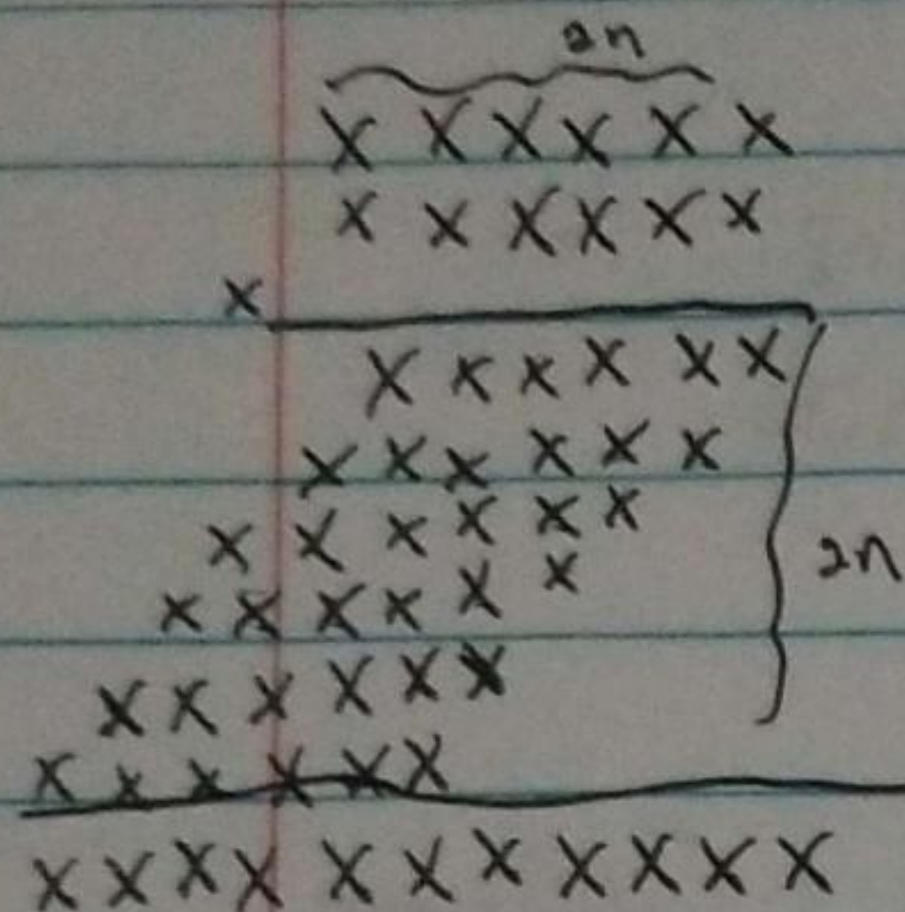 2n
X X X X X X
X X X X X X
x
X X X X X X
X X X X X X
X X X X X X
X X X X X X
X X X X X X
X X X X X X
2n
X X X X X X X X X X X